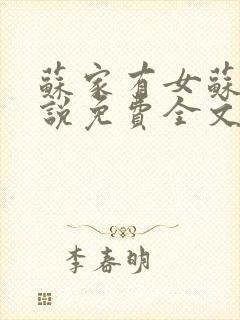 蘇家有女蘇
說免費全文
李春明